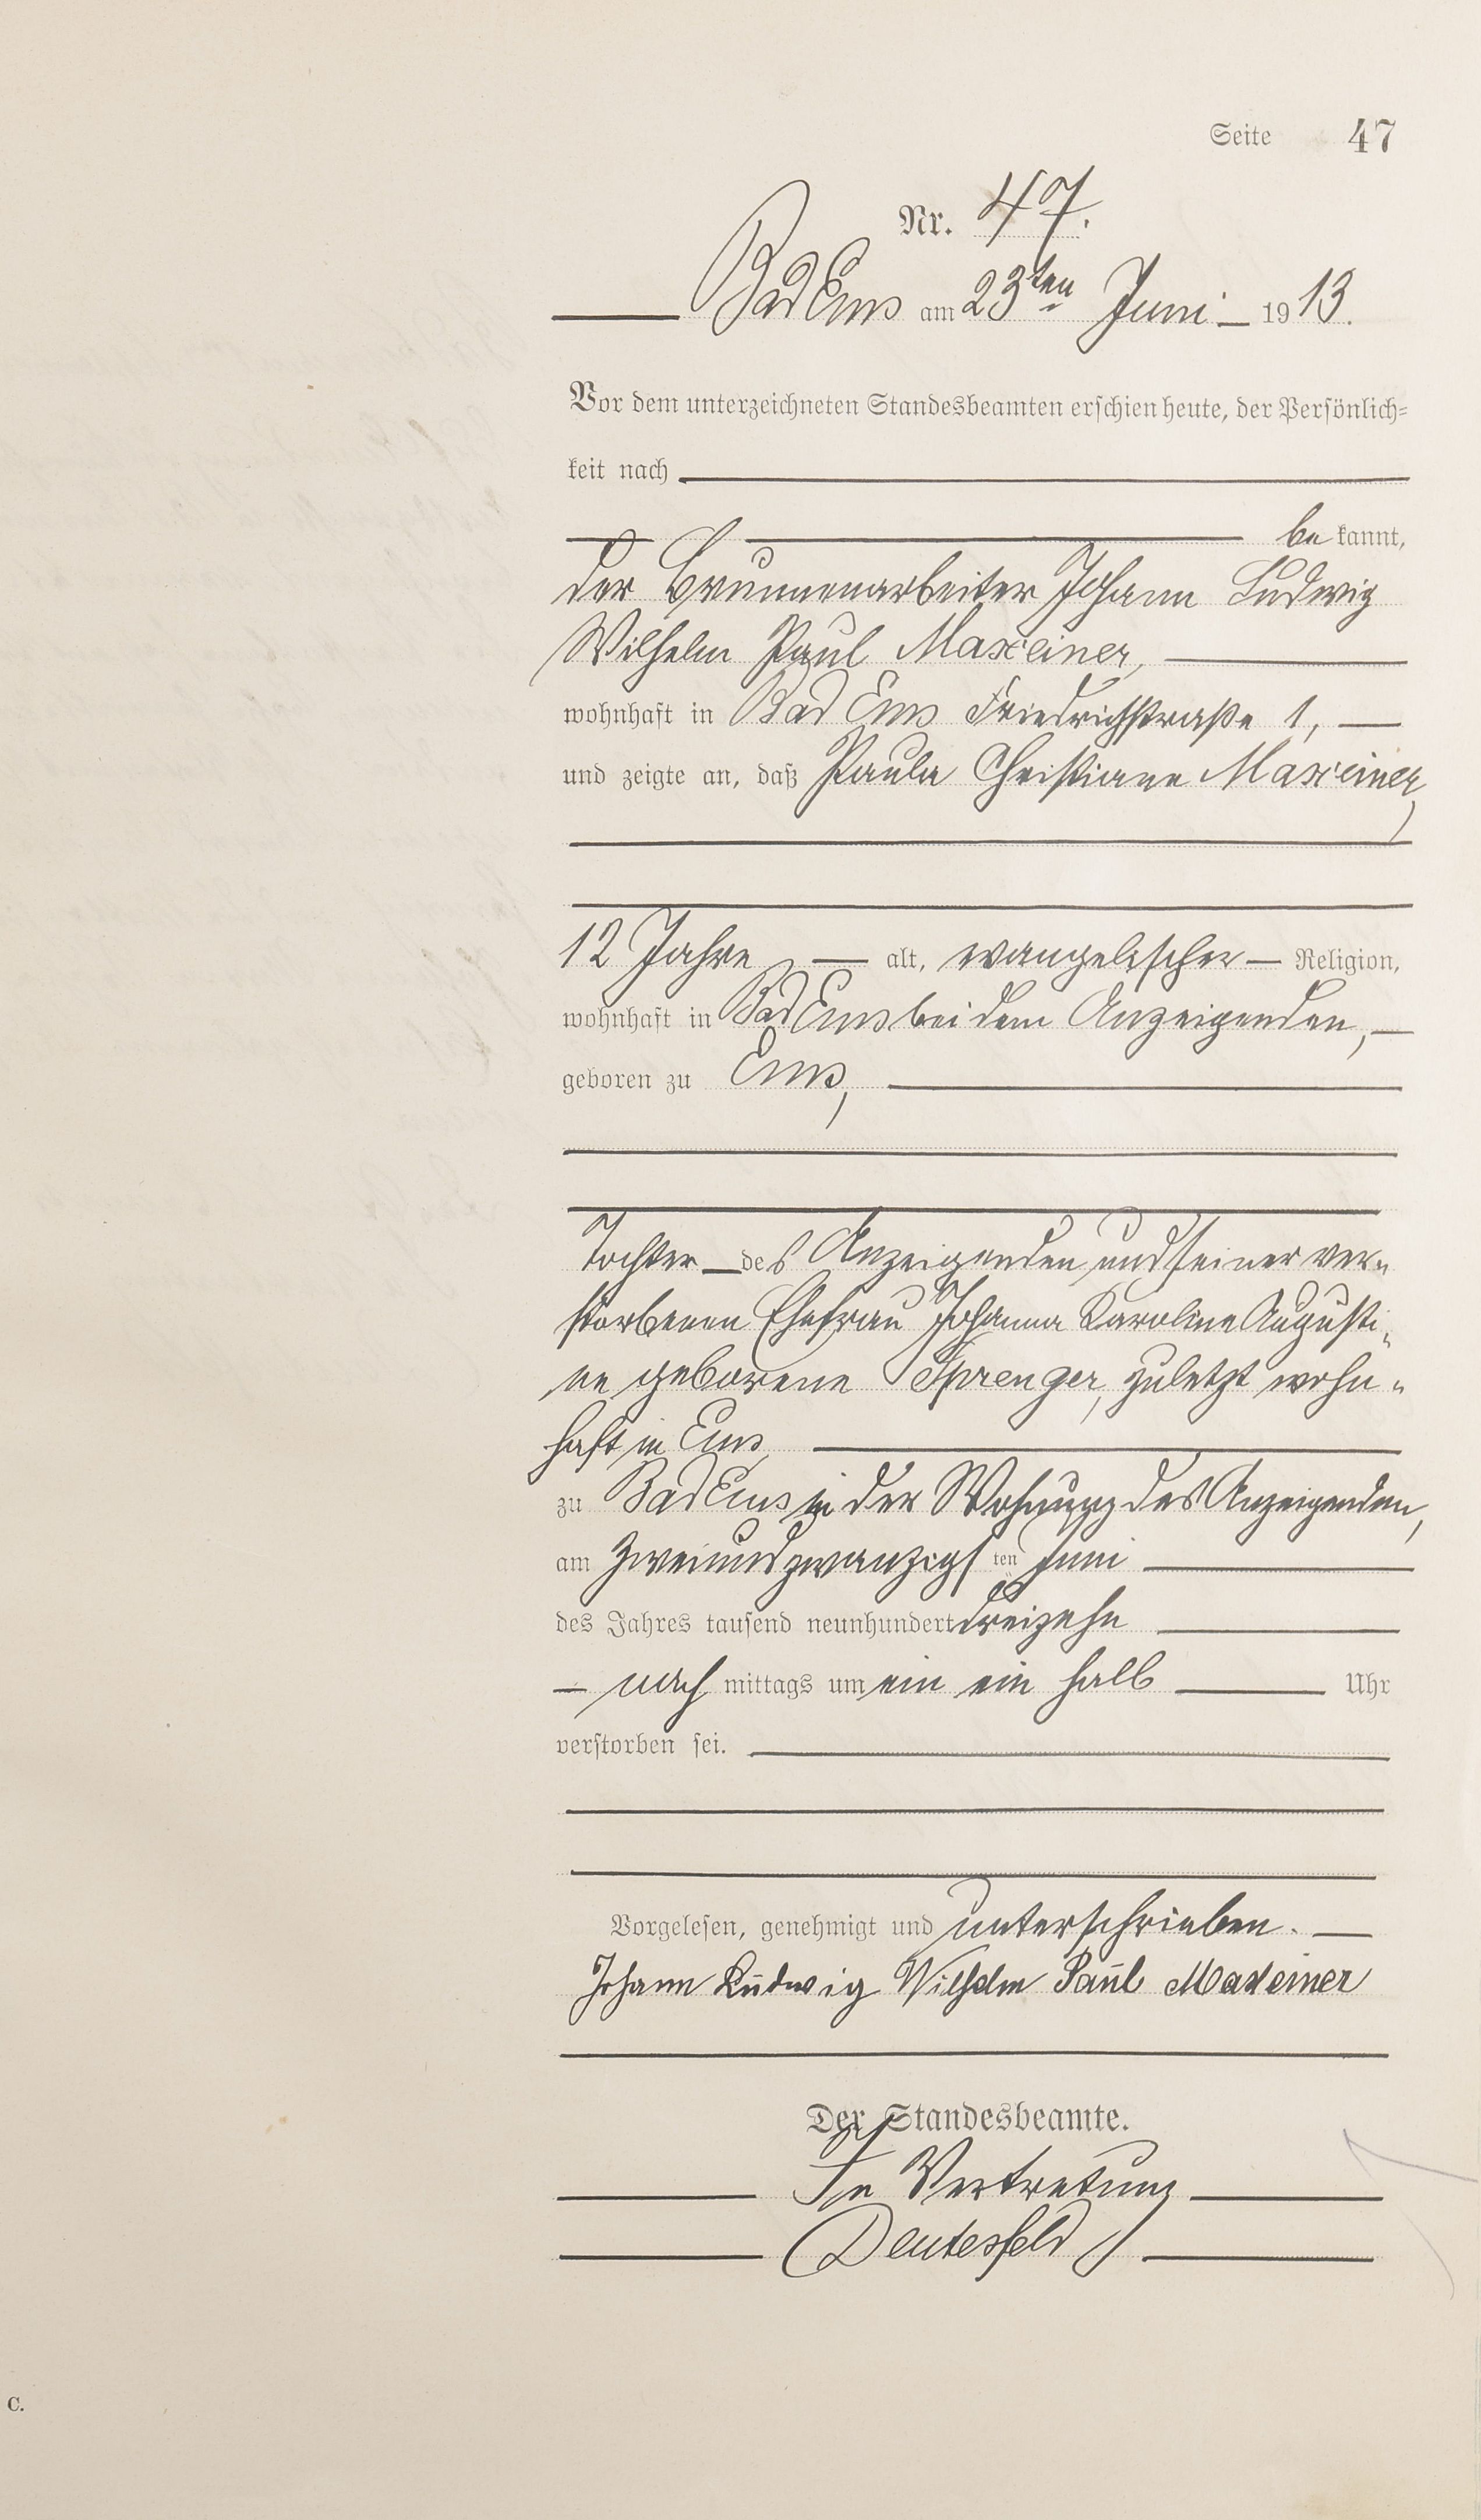 Seite 47
Nr. 47.
Bad Ems am 23ten Juni 1913.
Vor dem unterzeichneten Standesbeamten erschien heute, der Persönlich=
keit nach
bekannt,
der Brunnenarbeiter Johann Ludwig
Wilhelm Paul Maxeiner,
wohnhaft in Bad Ems Friedrichstraße 1,
und zeigte an, daß Paula Christiane Maxeiner,
12 Jahre alt, evangelischer Religion,
wohnhaft in Bad Ems bei dem Anzeigenden,
geboren zu Ems,
Tochter des Anzeigenden und seiner ver-
storbenen Ehefrau Johanna Karoline Augusti-
ne geborene Sprenger, zuletzt wohn-
haft in Ems,
zu Bad Ems in der Wohnung des Anzeigenden,
am zweiundzwanzigsten Juni
des Jahres tausend neunhundert dreizehn
nachmittags um ein ein halb Uhr
verstorben sei.
Vorgelesen, genehmigt und unterschrieben.
Johann Ludwig Wilhelm Paul Maxeiner
Der Standesbeamte.
In Vertretung
Deutesfeld
C.